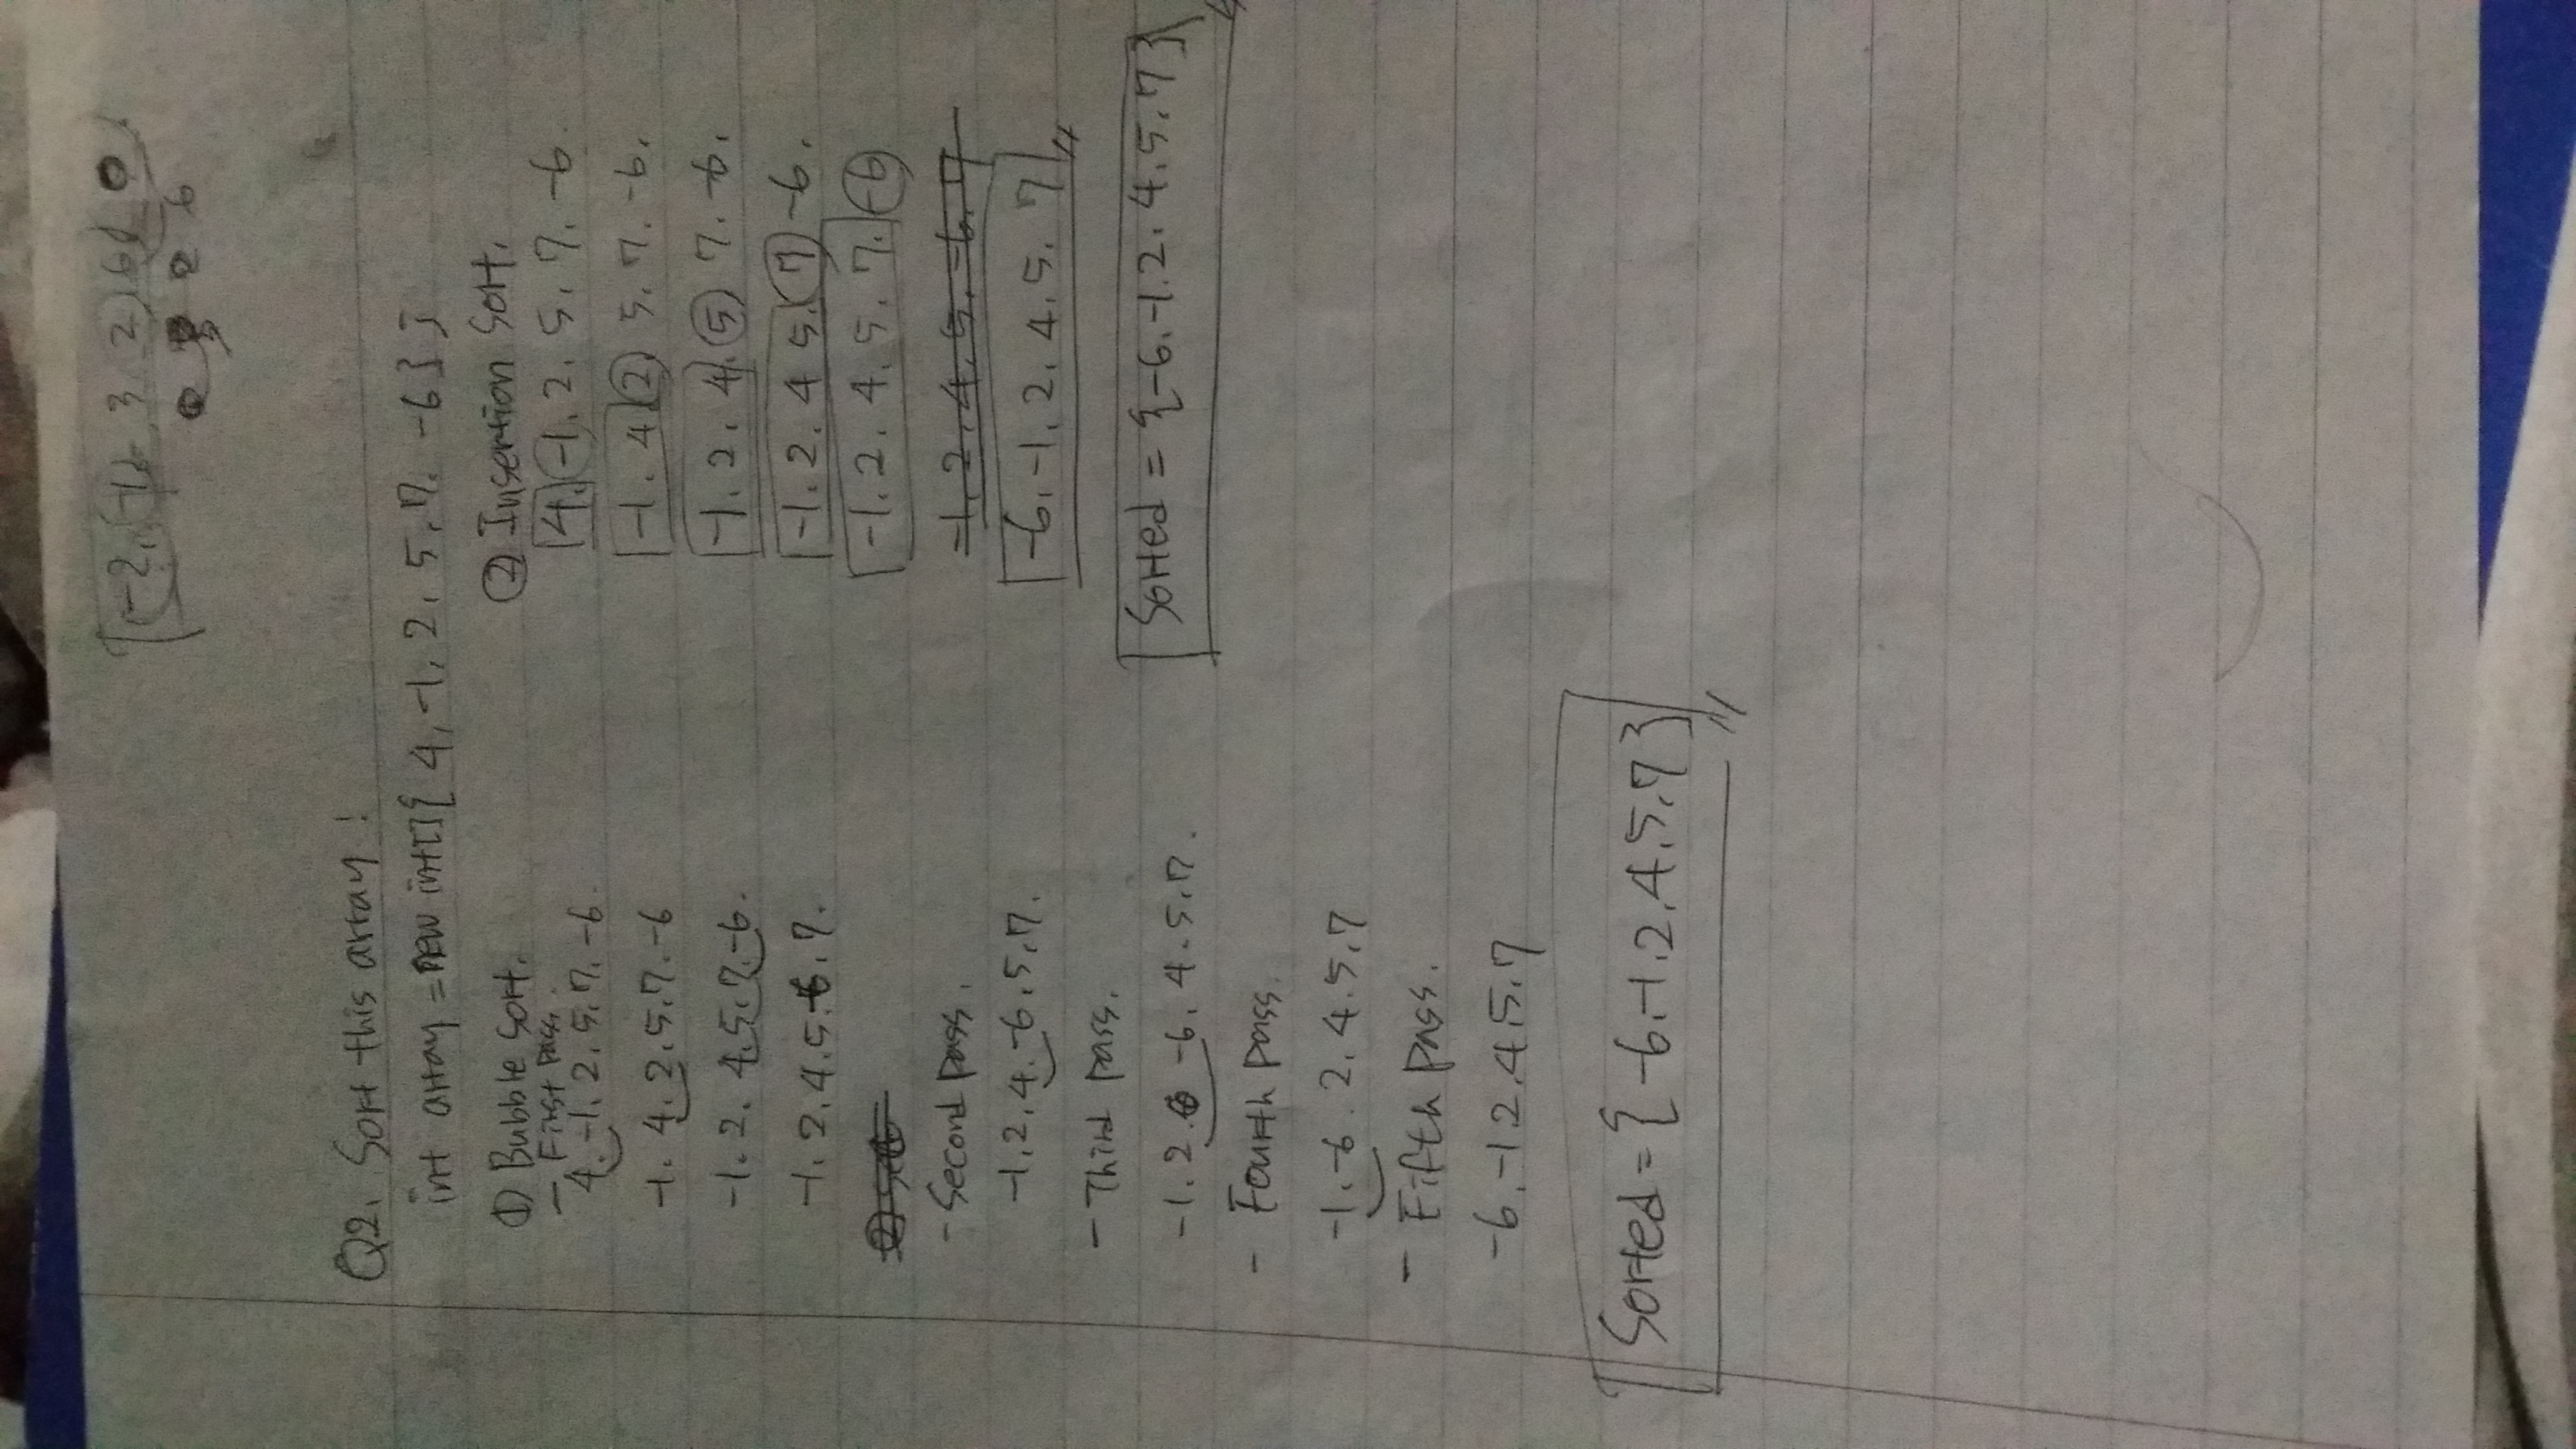 -2, -1, 3 2 6 0
0 3 2 6
Q2. Sort this array!
int array = new int[]{ 4, -1, 2, 5, 7, -6};
① Bubble Sort.
- First pass.
4, -1, 2, 5, 7, -6.
-1, 4, 2, 5, 7, -6
-1, 2, 4, 5, 7, -6.
-1, 2, 4, 5, -6, 7.
- Second pass.
-1, 2, 4, -6, 5, 7.
- Third pass.
-1, 2, -6, 4, 5, 7.
- Fourth pass.
-1, -6, 2, 4, 5, 7
- Fifth pass.
-6, -1, 2, 4, 5, 7
Sorted = { -6, -1, 2, 4, 5, 7 }
② Insertion Sort.
4, -1, 2, 5, 7, -6.
-1, 4, 2, 5, 7, -6.
-1, 2, 4, 5, 7, -6.
-1, 2, 4, 5, 7, -6.
-1, 2, 4, 5, 7, -6
-1, 2, 4, 5, -6, 7
-6, -1, 2, 4, 5, 7
Sorted = {-6, -1, 2, 4, 5, 7}